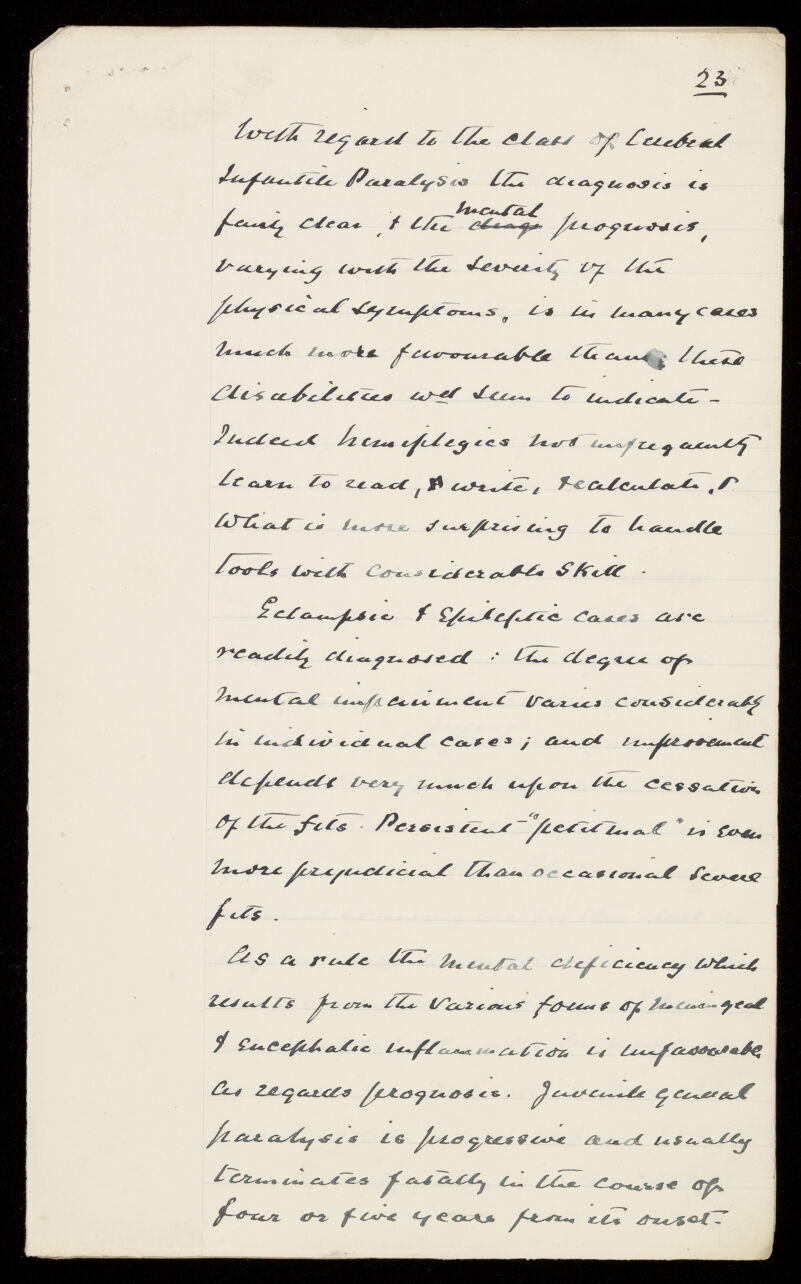 23
With regard to the class of Cerebral
Infantile Paralysis the diagnosis is
fairly clear, & the mental prognosis,
varying with the severity of the
physical symptoms, is in many cases
much more favourable than these
disabilities wd seem to indicate -
Indeed hemiplegics not unfrequently
learn to read, & write, & calculate, &
what is more surprising to handle
tools with considerable skill.
Eclampsic & Epileptic cases are
readily diagnosed : the degree of
mental impairment varies considerably
in individual cases; and improvement
depends very much upon the cessation
of the fits. Persistent "petit mal" is even
more prejudicial than occasional severe
fits.
As a rule the mental deficiency which
results from the various forms of meningeal
& encephalic inflammation is unfavourable
as regards prognosis. Juvenile general
paralysis is progressive and usually
terminates fatally in the course of
four or five years from its onset.